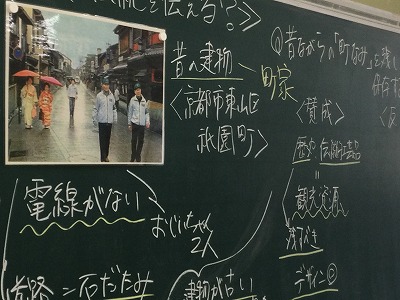 を伝える？＞
昔の建物 ー 町家
＜京都市東山区
祇園町＞
電線がない
おじいちゃん
2人
道路＝石だたみ
建物が古い
①昔ながらの「町なみ」を残し
保存す
＜賛成＞
＜反
歴史 伝統工芸品
＝
観光資源
残すべき
デザイン◎